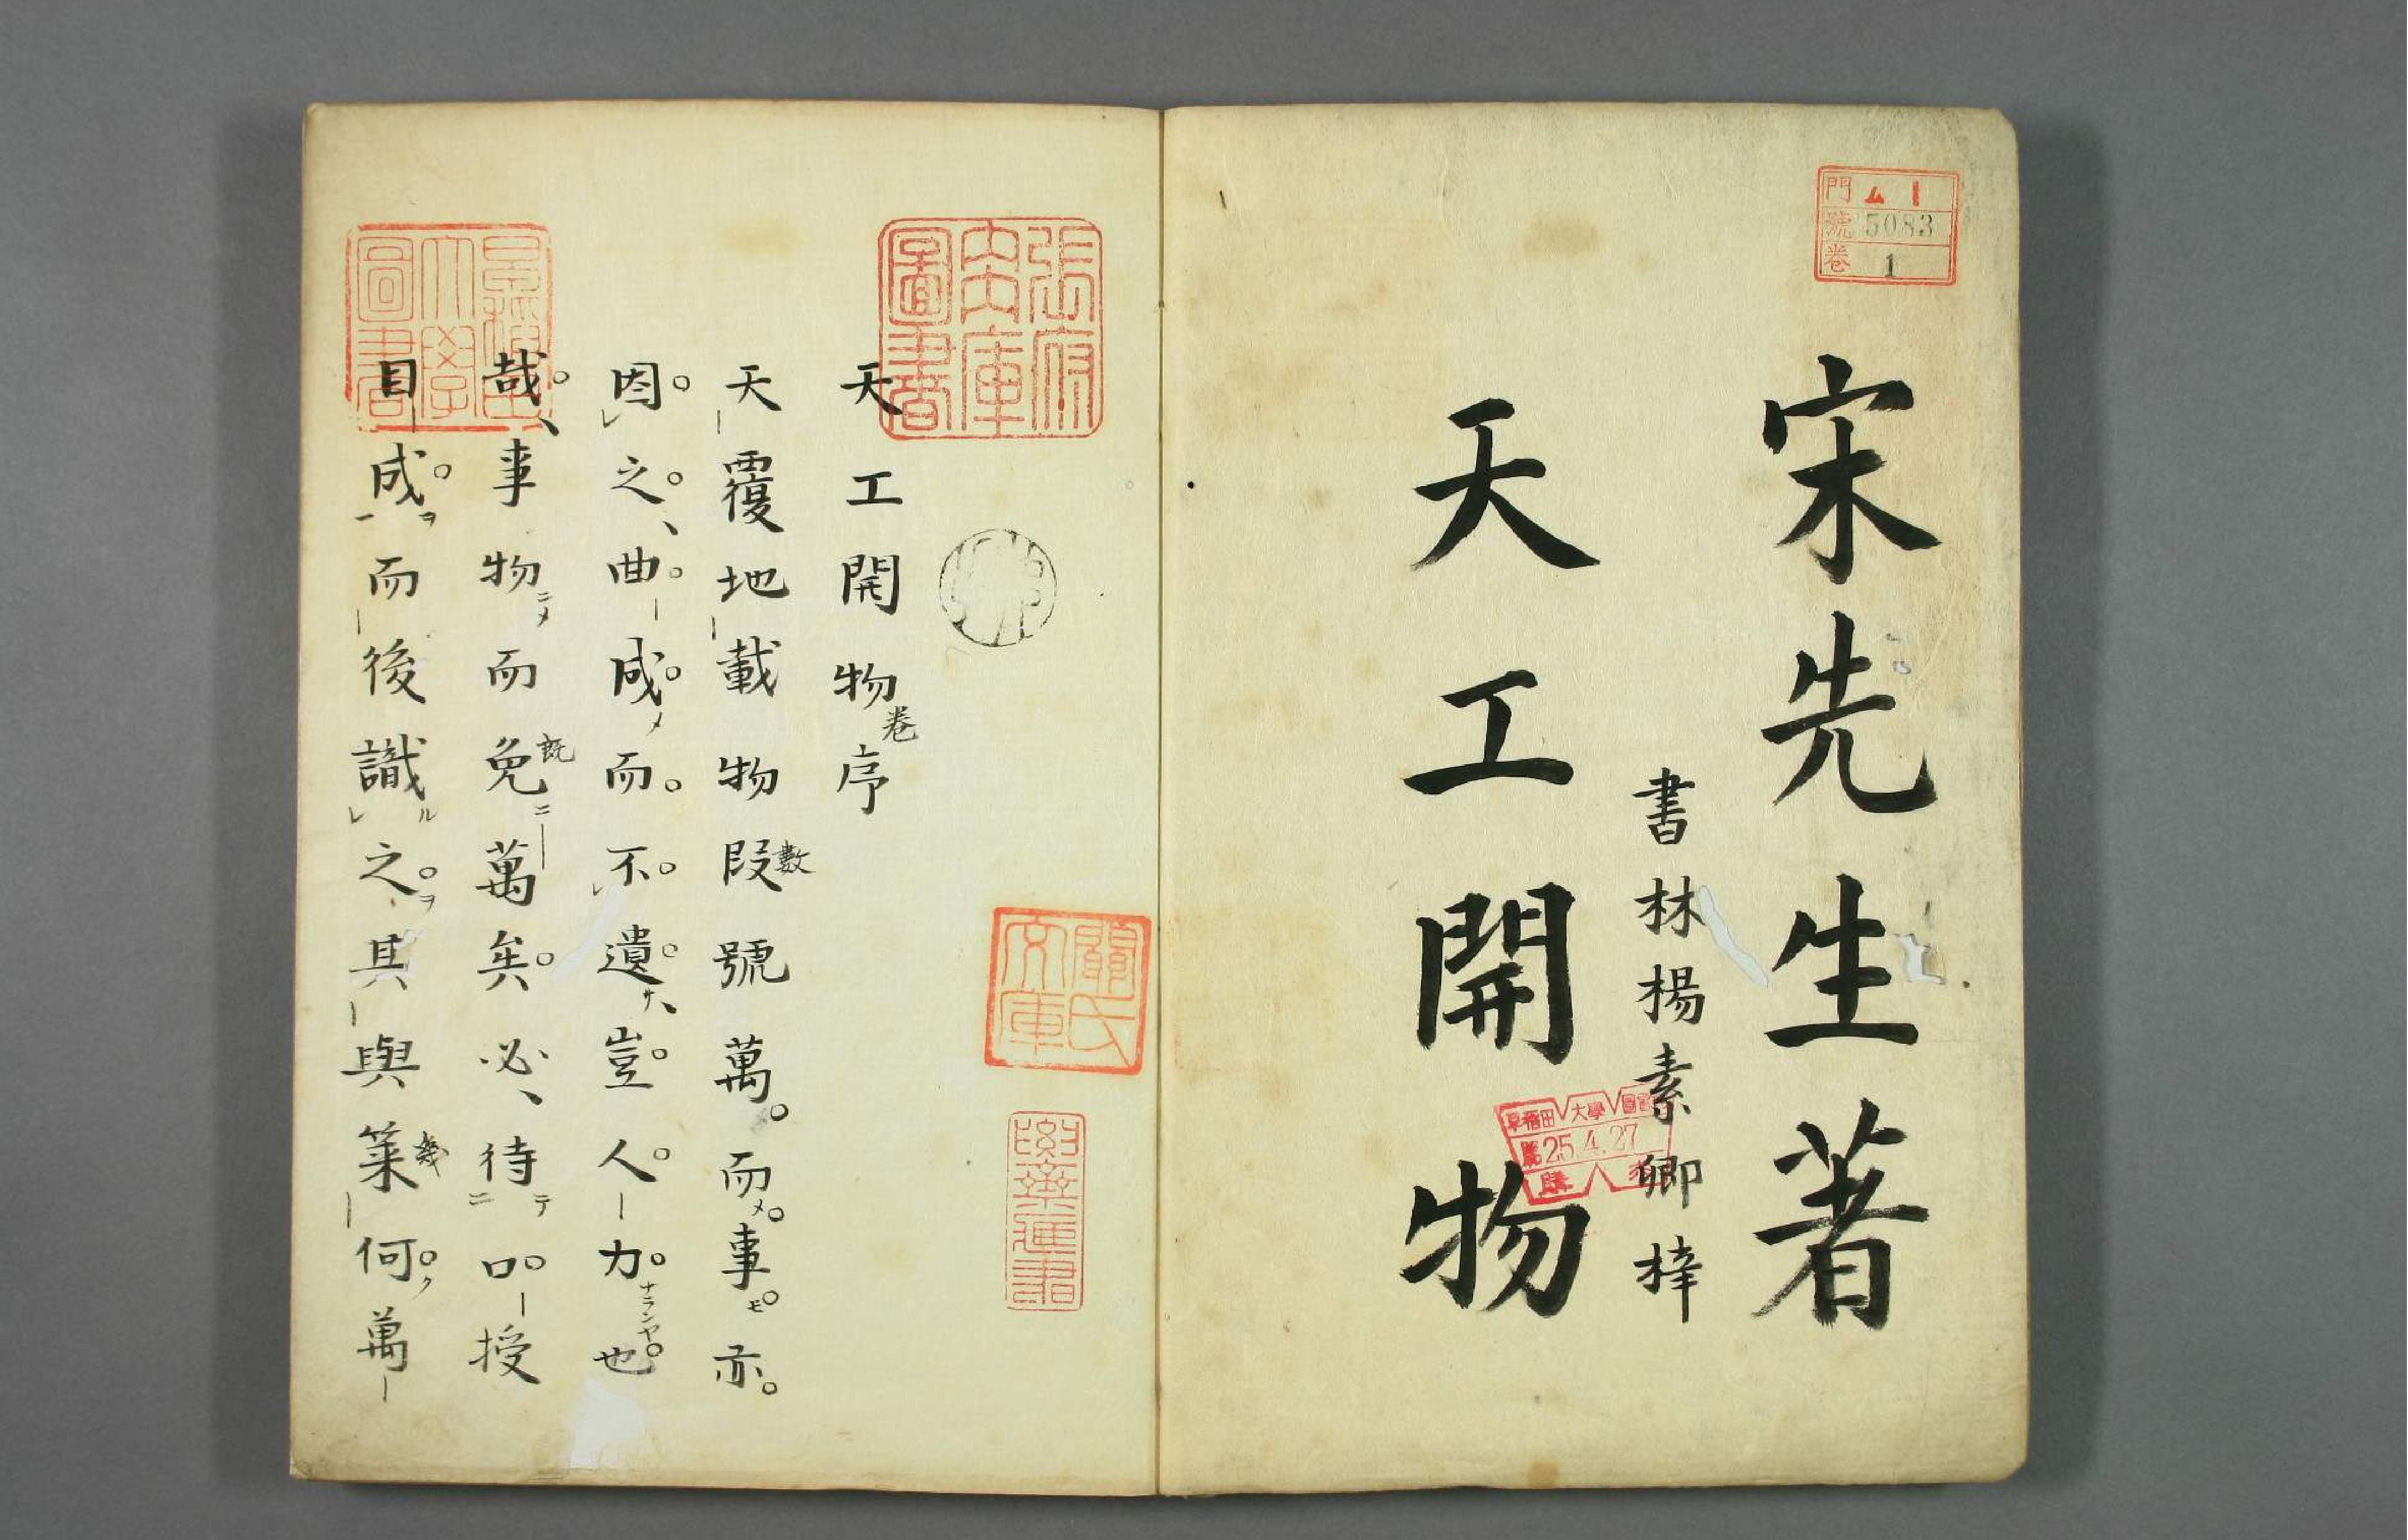 宋先生著
書林楊素卿梓
天工開物
門 ム 1
號 5083
卷 1
早稲田大學圖書
25.4.27
購
天工開物卷序
天覆地載物叚數號萬而メ事モ亦
因之曲成メ而不遺サ豈人力ナランヤ也
哉事物ニメ而免既ニ萬矣必待テ口授
目成ヲ而後識ル之ヲ其與菓幾何ノ萬
張府內庫圖書
關氏文庫